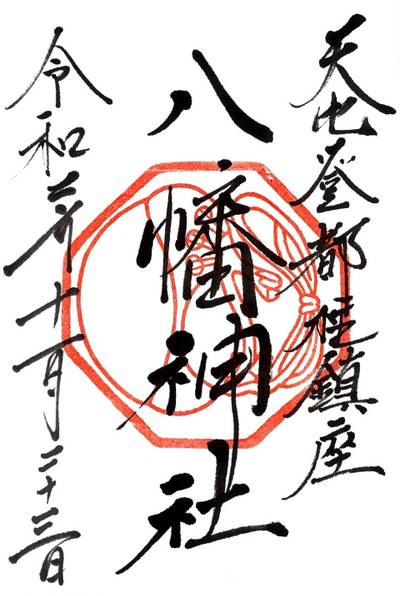 天比登都柱鎮座
八幡神社
令和二年十一月二十三日